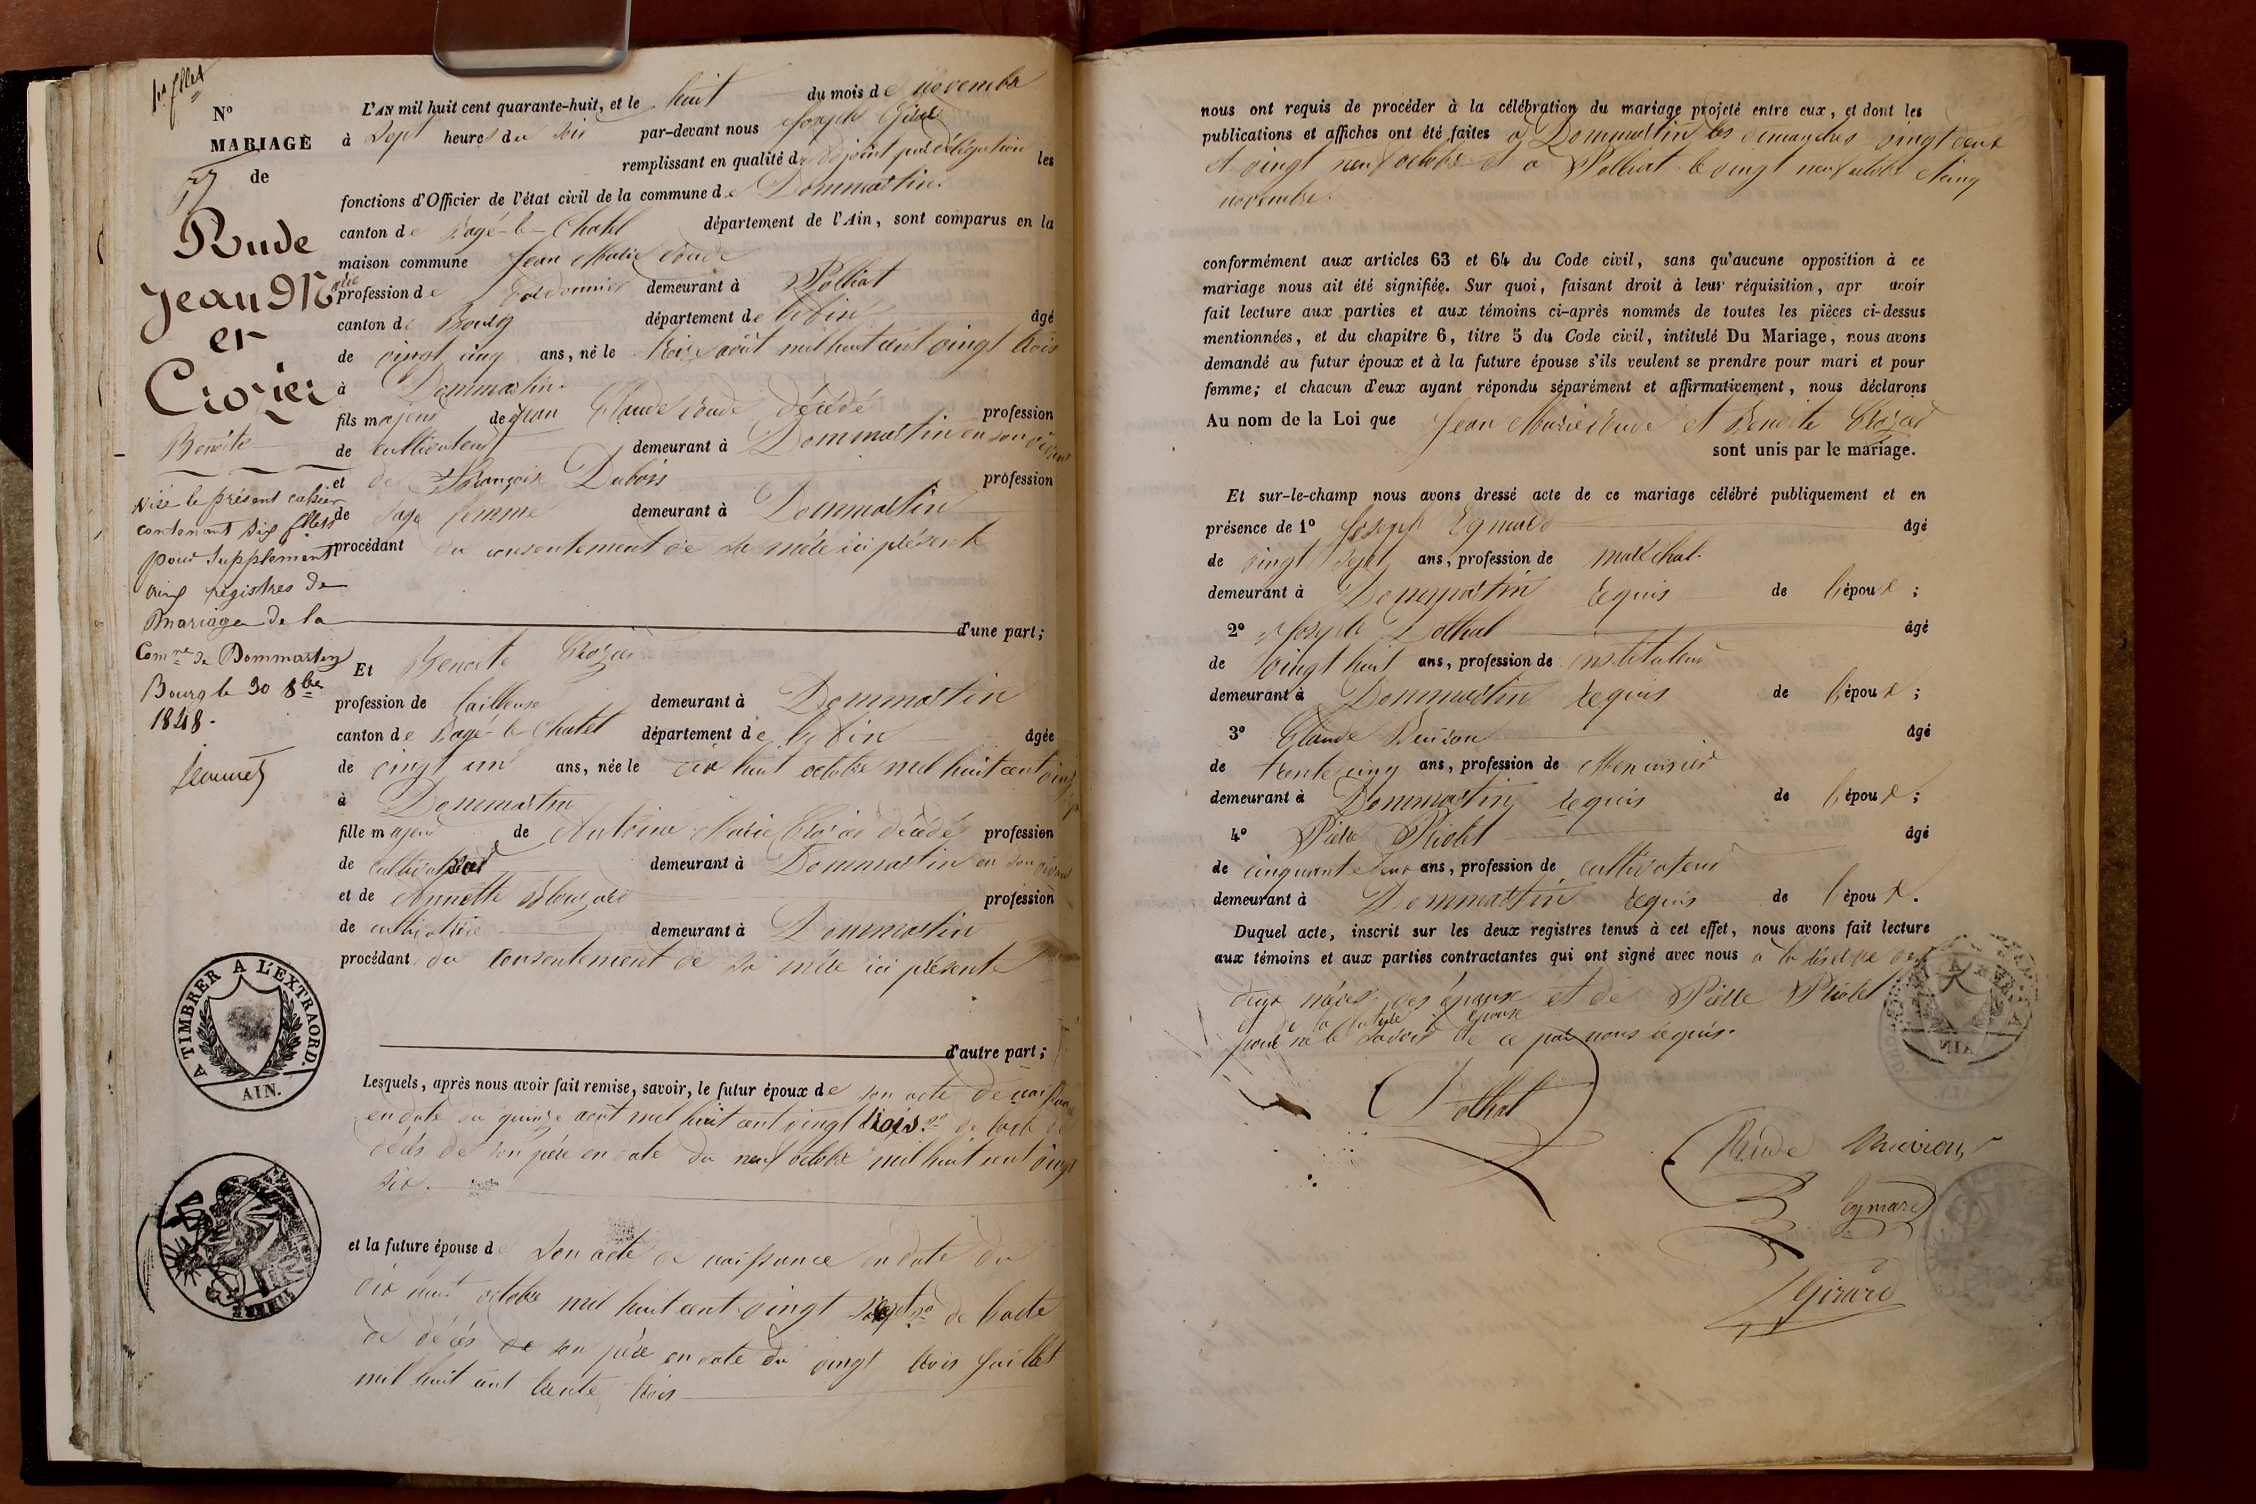 1er fllet
N°
MARIAGE
17
de
Rude
Jean Marie
et
Crozier
Benoîte
Visé le présent cahier
contenant dix fllets
pour supplément
aux registres de
Mariage de la
Comne de Dommartin
Bourg le 30 8bre
1848.
L'AN mil huit cent quarante-huit, et le huit du mois de novembre
à sept heures du soir par-devant nous Joseph
remplissant en qualité d'adjoint par délégation les
fonctions d'Officier de l'état civil de la commune de Dommartin.
canton de Bagé-le-Chatel département de l'Ain, sont comparus en la
maison commune Jean Marie Rude
profession de Cordonnier demeurant à Polliat
canton de Bourg département de l'Ain âgé
de vingt cinq ans, né le trois août mil huit cent vingt trois
à Dommartin.
fils majeur de Jean Claude Rude décédé profession
de cultivateur demeurant à Dommartin en son vivant
et de Françoise Dubois profession
de sage femme demeurant à Dommartin
procédant du consentement de sa mère ici présente
d'une part;
Et Benoite Crozier
profession de tailleuse demeurant à Dommartin
canton de Bagé-le-Chatel département de l'Ain âgée
de vingt un ans, née le dix huit octobre mil huit cent vingt
à Dommartin
fille majeure de Antoine Marie Crozier décédé profession
de cultivateur demeurant à Dommartin en son vivant
et de Annette profession
de cultivatrice demeurant à Dommartin
procédant du consentement de sa mère ici présente
d'autre part;
Lesquels, après nous avoir fait remise, savoir, le futur époux de son acte de naissance
en date du quinze août mil huit cent vingt trois 2° de l'acte de
décès de son père en date du neuf octobre mil huit cent vingt
six.
et la future épouse de son acte de naissance en date du
dix huit octobre mil huit cent vingt sept 2° de l'acte
de décès de son père en date du vingt trois juillet
mil huit cent trente trois
A TIMBRER A L'EXTRAORD.
AIN.
nous ont requis de procéder à la célébration du mariage projeté entre eux, et dont les
publications et affiches ont été faites à Dommartin les dimanches vingt deux
et vingt neuf octobre et à Polliat le vingt neuf octobre et cinq
novembre.
conformément aux articles 63 et 64 du Code civil, sans qu'aucune opposition à ce
mariage nous ait été signifiée. Sur quoi, faisant droit à leur réquisition, apr avoir
fait lecture aux parties et aux témoins ci-après nommés de toutes les pièces ci-dessus
mentionnées, et du chapitre 6, titre 5 du Code civil, intitulé Du Mariage, nous avons
demandé au futur époux et à la future épouse s'ils veulent se prendre pour mari et pour
femme; et chacun d'eux ayant répondu séparément et affirmativement, nous déclarons
Au nom de la Loi que Jean Marie Rude et Benoite Crozier
sont unis par le mariage.
Et sur-le-champ nous avons dressé acte de ce mariage célébré publiquement et en
présence de 1° Joseph Eymard âgé
de vingt sept ans, profession de maréchal.
demeurant à Dommartin requis de l'époux;
2° Joseph Dolhat âgé
de vingt huit ans, profession de instituteur
demeurant à Dommartin requis de l'époux;
3° Claude âgé
de trente cinq ans, profession de Menuisier
demeurant à Dommartin requis de l'époux;
4° Pierre Riolet âgé
de cinquante deux ans, profession de cultivateur
demeurant à Dommartin requis de l'époux.
Duquel acte, inscrit sur les deux registres tenus à cet effet, nous avons fait lecture
aux témoins et aux parties contractantes qui ont signé avec nous à la réserve des
deux mères des époux et de Pierre Riolet
et de la future épouse
pour ne le savoir de ce par nous requis.
Dolhat
Rude
Eymard
Girard
AIN